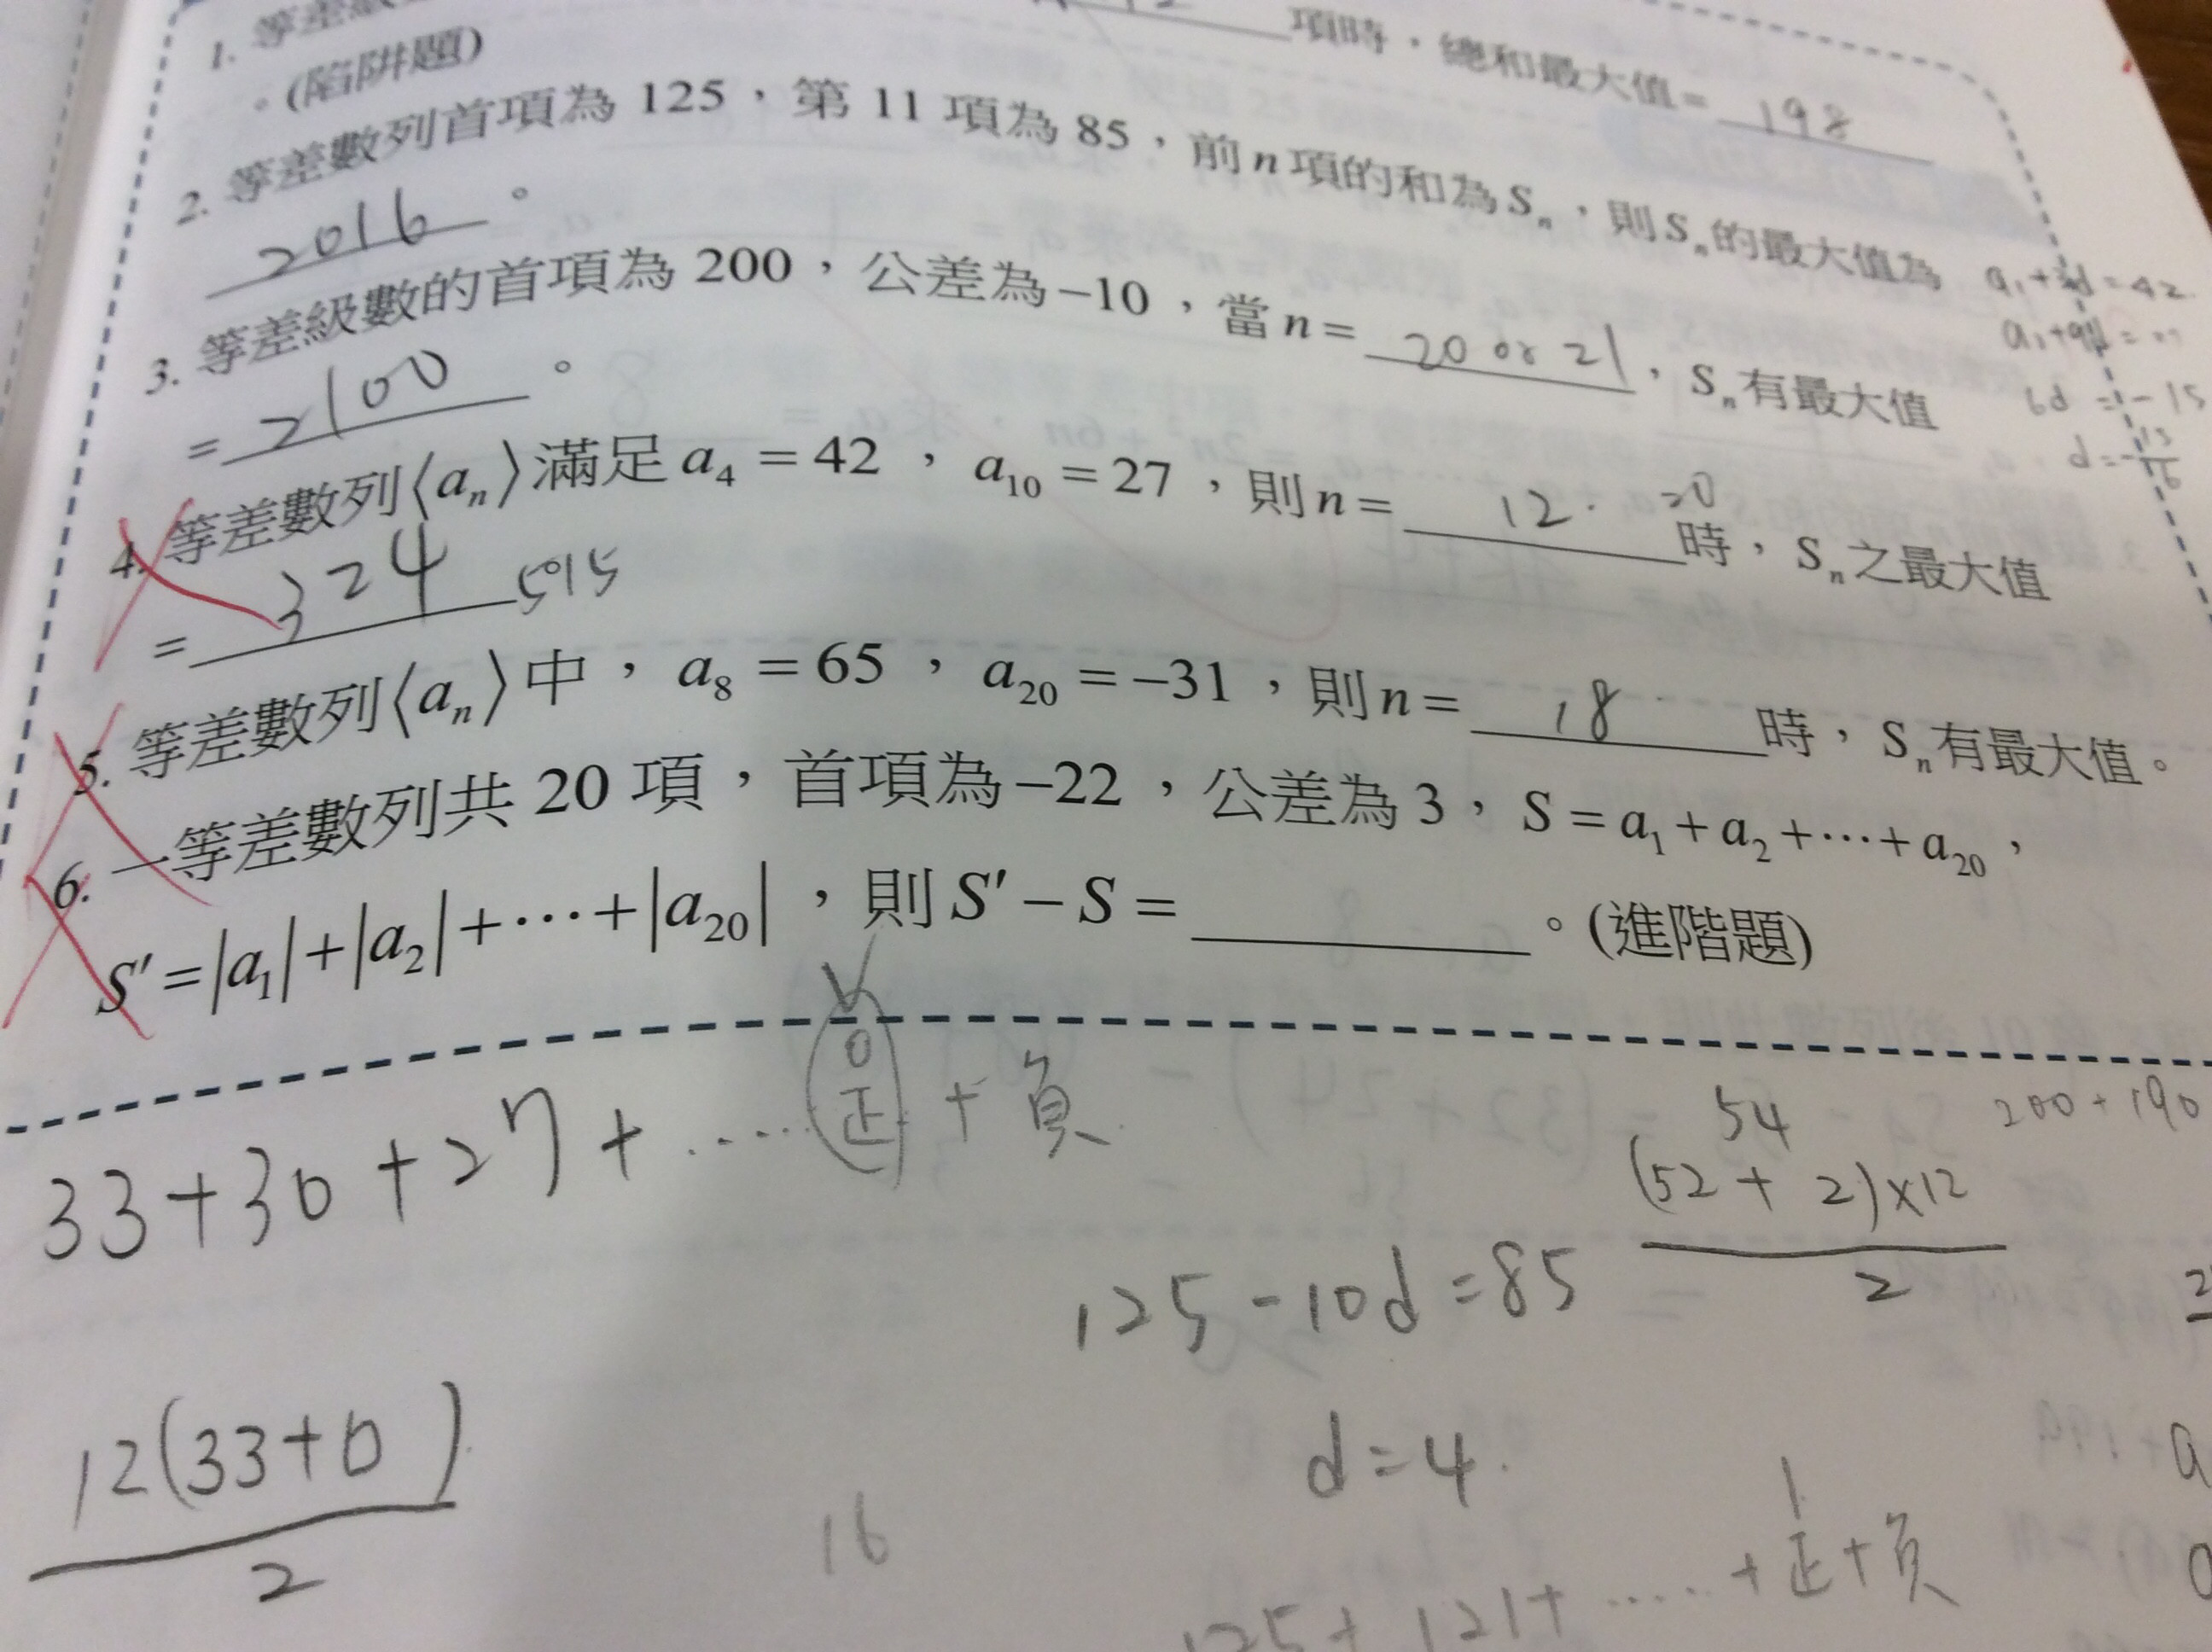 1. 等差級
項時，總和最大值= 198
。(陷阱題)
2. 等差數列首項為 125，第 11 項為 85，前 n 項的和為 Sₙ，則 Sₙ 的最大值為
2016 。
3. 等差級數的首項為 200，公差為 −10，當 n = 20 or 21，Sₙ 有最大值
= 2100 。
4. 等差數列⟨aₙ⟩滿足 a₄ = 42，a₁₀ = 27，則 n = 12. 20 時，Sₙ 之最大值
= 324
5. 等差數列⟨aₙ⟩中，a₈ = 65，a₂₀ = −31，則 n = 18 時，Sₙ 有最大值。
6. 一等差數列共 20 項，首項為 −22，公差為 3，S = a₁ + a₂ + ⋯ + a₂₀，
S′ = |a₁| + |a₂| + ⋯ + |a₂₀|，則 S′ − S = 。(進階題)
a₁+3d=42
6d = -15
0
33+30+27+ ..... 正 + 負
54
(52 + 2)×12
2
200+190
125-10d=85
12(33+0)
2
d=4.
16
1
125+121+ ..... +正+負